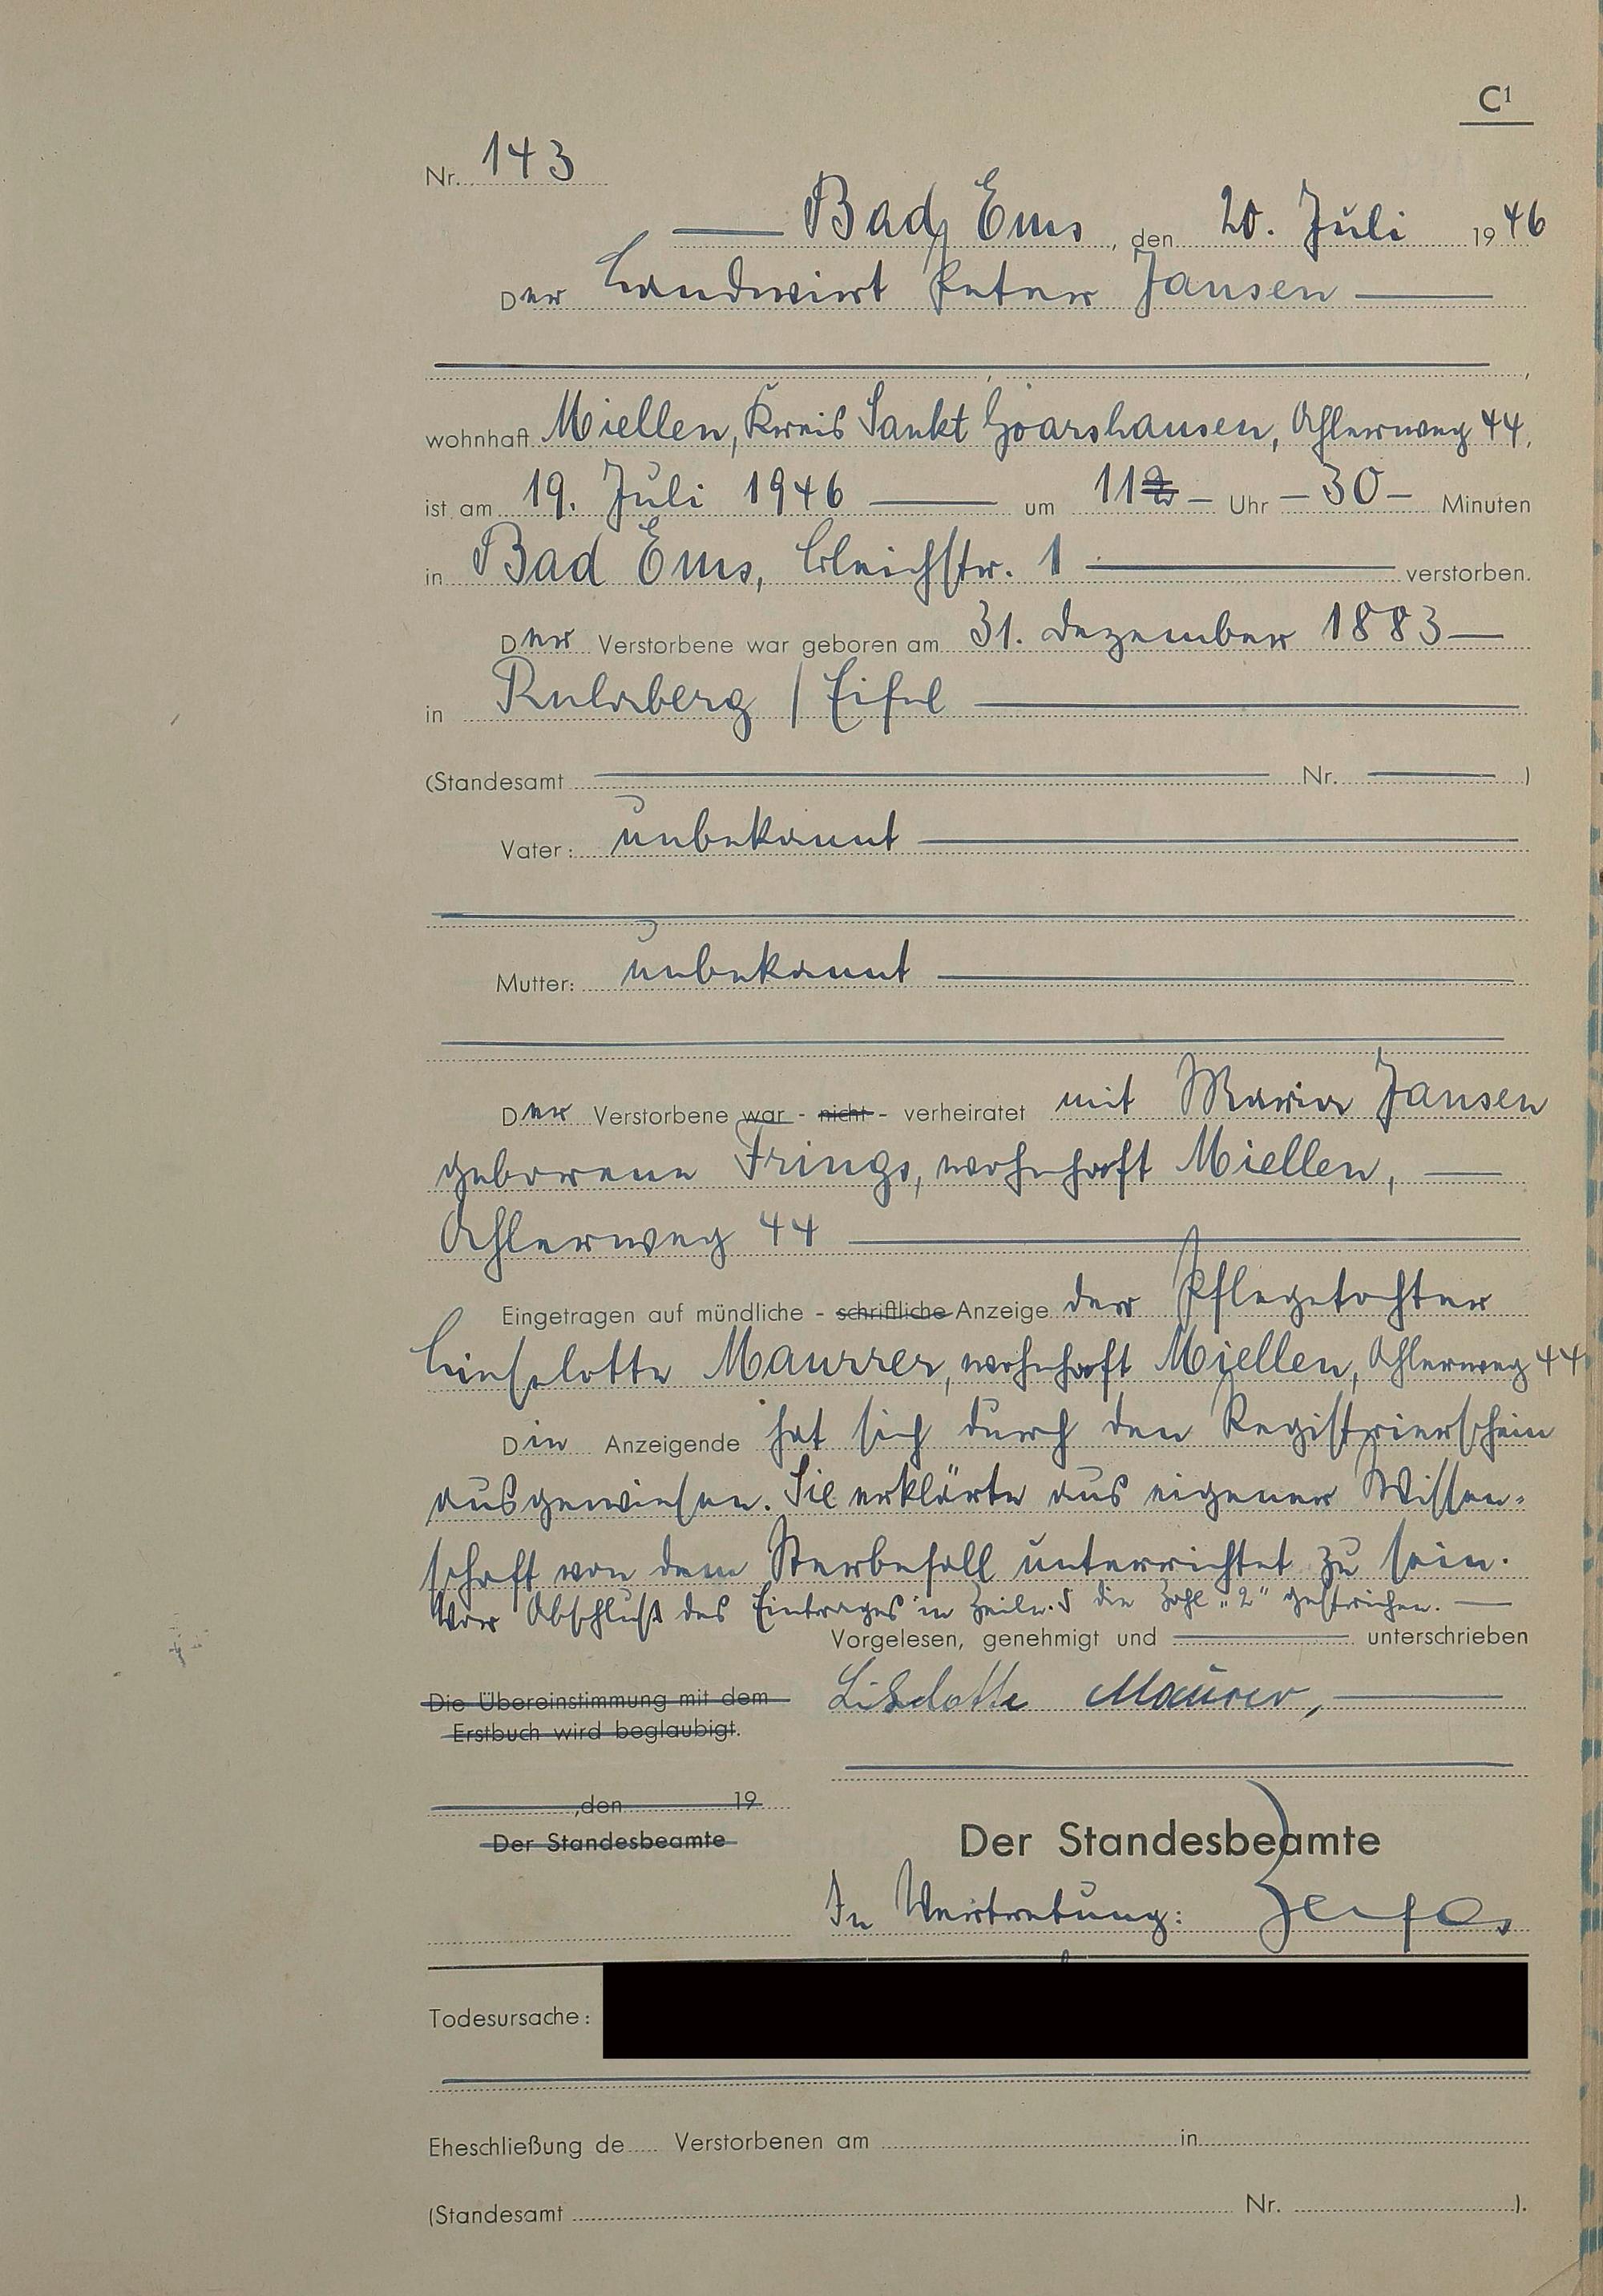 C1
Nr. 143
Bad Ems, den 20. Juli 1946
Der Landwirt Peter Jansen
wohnhaft Miellen, Kreis Sankt Goarshausen, Ahlerweg 44,
ist am 19. Juli 1946 um 112 Uhr 30 Minuten
in Bad Ems, Bleichstr. 1 verstorben.
Der Verstorbene war geboren am 31. Dezember 1883
in Ruhrberg / Eifel
(Standesamt Nr. )
Vater: unbekannt
Mutter: unbekannt
Der Verstorbene war - nicht - verheiratet mit Maria Jansen
geborene Frings, wohnhaft Miellen,
Ahlerweg 44
Eingetragen auf mündliche - schriftliche Anzeige der Pflegetochter
Lieselotte Maurrer, wohnhaft Miellen, Ahlerweg 44
Die Anzeigende hat sich durch den Registrierschein
ausgewiesen. Sie erklärte aus eigener Wissen-
schaft von dem Sterbefall unterrichtet zu sein.
Vor Abschluß des Eintrages in Zeile 5 die Zahl „2" gestrichen.
Vorgelesen, genehmigt und unterschrieben
Die Übereinstimmung mit dem
Erstbuch wird beglaubigt.
Maurer,
, den 19
Der Standesbeamte
Der Standesbeamte
In Vertretung:
Todesursache:
Eheschließung de Verstorbenen am in
(Standesamt Nr. ).